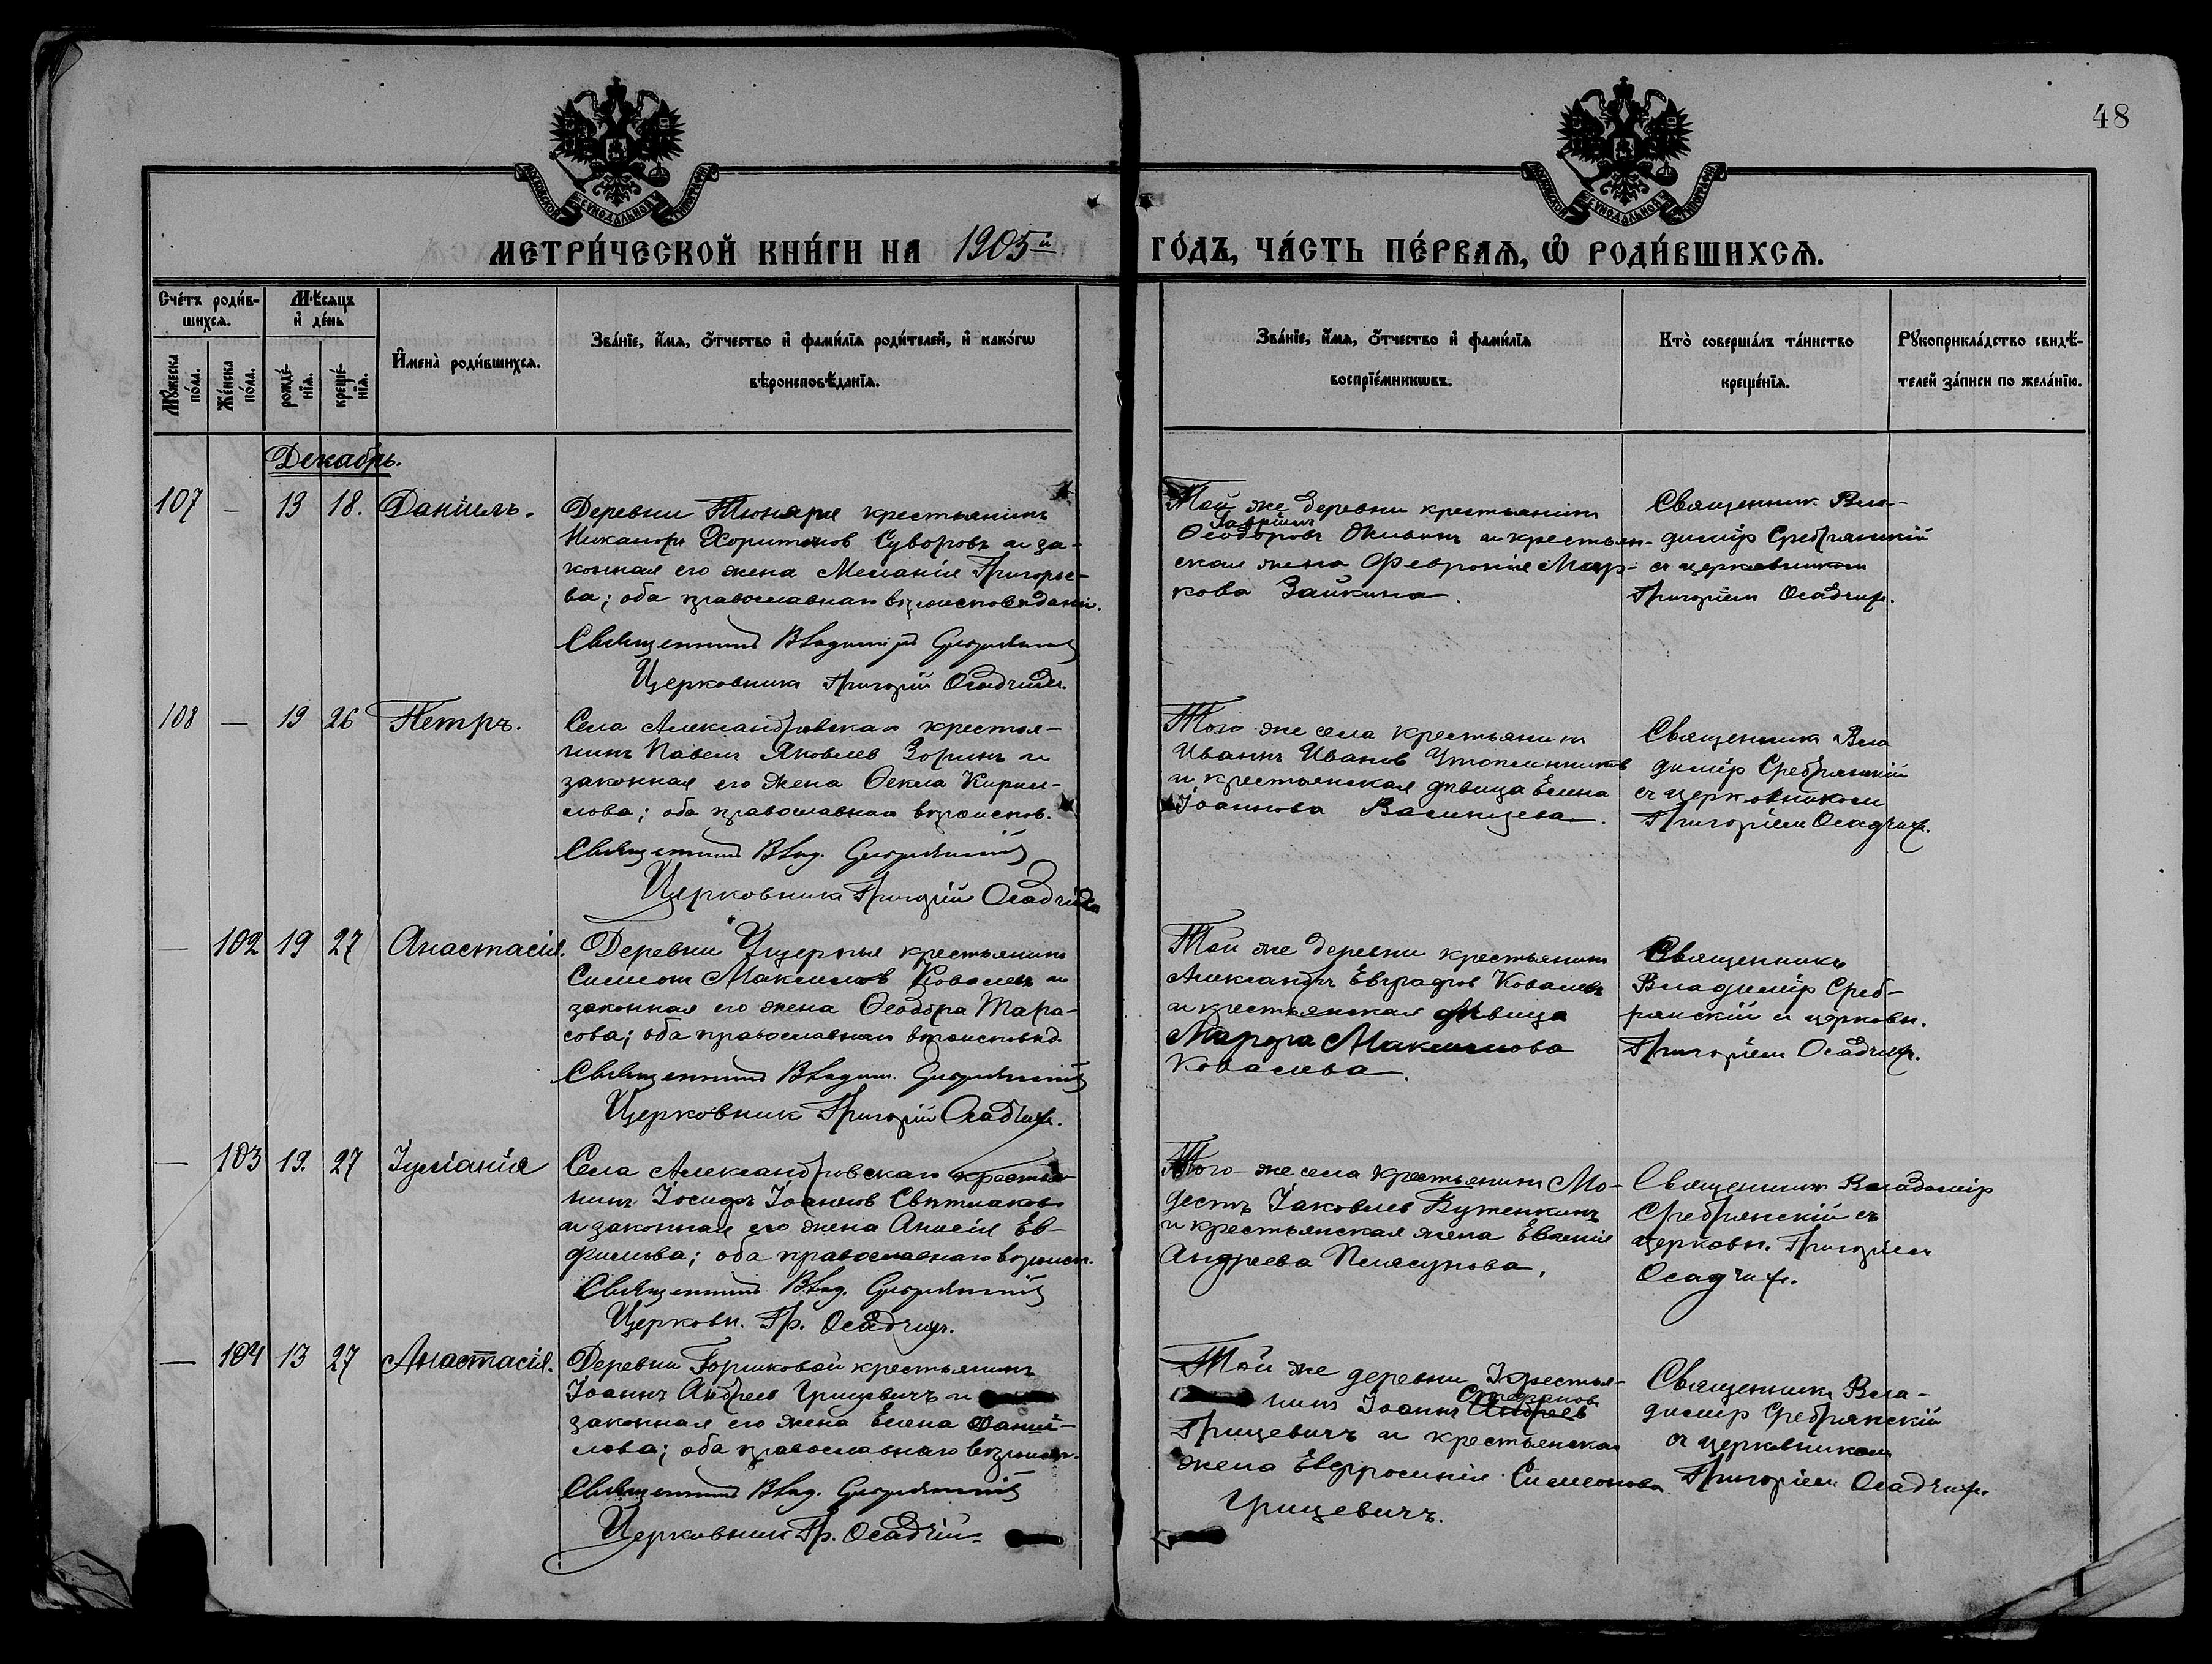 48
МЕТРИ́ЧЕСКОЙ КНИ́ГИ НА 1905й ГО́ДЪ, ЧА́СТЬ ПЕ́РВАЯ, Ѡ РОДИ́ВШИХСЯ.
Сче́тъ роди́в-
шихся.
Мѣ́сяцъ
и де́нь
Му́жеска
по́ла.
Же́нска
по́ла.
рожде́-
нія.
креще́-
нія.
Имена̀ роди́вшихся.
Зва́ніе, и́мя, о́тчество и фами́лія роди́телей, и како́гѡ
вѣроисповѣ́данія.
Зва́ніе, и́мя, о́тчество и фами́лія
воспріе́мникѡвъ.
Кто̀ соверша́лъ та́инство
креще́нія.
Рꙋкоприкла́дство свидѣ́-
телей за́писи по жела́нію.
Декабрь.
107 – 13 18. Даніилъ.
Деревни Тюняря крестьянинъ
Никаноръ Харитонов Суворовъ и за-
конная его жена Меланія Григорье-
ва; оба православнаго вѣроисповѣдані.
Священникъ Владиміръ Сребрянскій
Церковникъ Григорій Осадчій.
Той же деревни крестьянинъ
Гавріилъ
Ѳеодоровъ и крестьян-
ская жена Февронія Мар-
кова Зайкина.
Священник Вла-
диміръ Сребрянскій
съ церковникомъ
Григоріем Осадчим.
108 – 19 26 Петръ.
Села Александровскаго крестья-
нинъ Павелъ Яковлев Зоринъ и
законная его жена Ѳекла Кирил-
лова; оба православнаго вѣроиспов.
Священникъ Влад. Сребрянскій
Церковникъ Григорій Осадчій
Того же села крестьянинъ
Иванъ Иванов
и крестьянская дѣвица Елена
Іоаннова Василицева.
Священникъ Вла
диміръ Сребрянскій
съ церковникомъ
Григоріем Осадчим.
– 102 19 27 Анастасія.
Деревни Ущерпья крестьянинъ
Симеонъ Максимов Ковалевъ и
законная его жена Ѳеодора Тара-
сова; оба православнаго вѣроисповѣд.
Священникъ Владим. Сребрянскій
Церковник Григорій Осадчій.
Той же деревни крестьянинъ
Александръ Евграфов Ковалевъ
и крестьянская дѣвица
Марфа Максимова
Ковалева.
Священникъ
Владиміръ Среб-
рянскій и церковн.
Григоріем Осадчим.
– 103 19. 27 Іуліанія
Села Александровскаго крестья-
нинъ Іосифъ Іоаннов Свѣтлаковъ
и законная его жена Анисія Ев-
фимова; оба православнаго вѣроисп.
Священникъ Влад. Сребрянскій
Церковн. Гр. Осадчій.
Того же села крестьянинъ Мо-
дестъ Іаковлев Путенкинъ
и крестьянская жена Евгенія
Андреева Плясунова.
Священник Владиміръ
Сребрянскій съ
церковн. Григоріем
Осадчим.
– 104 13 27 Анастасія.
Деревни Горшковой крестьянинъ
Іоаннъ Андреев Грицевичъ и
законная его жена Елена Даніи-
лова; оба православнаго вѣроисп.
Священникъ Влад. Сребрянскій
Церковник Гр. Осадчій.
Той же деревни крестья-
нинъ Іоаннъ Андреев Стефанов
Грицевичъ и крестьянская
жена Евфросинія Симеонова
Грицевичъ.
Священникъ Вла-
диміръ Сребрянскій
съ церковникомъ
Григоріем Осадчим.